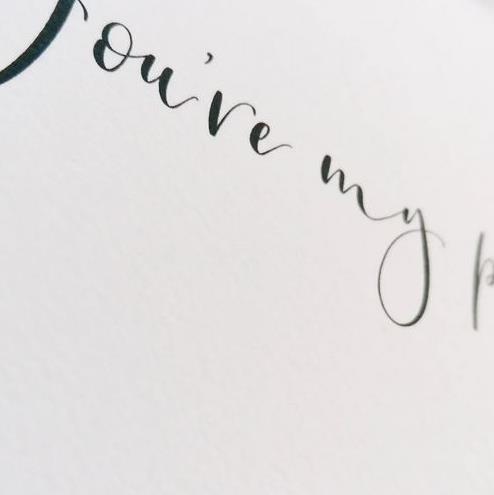 You're my p